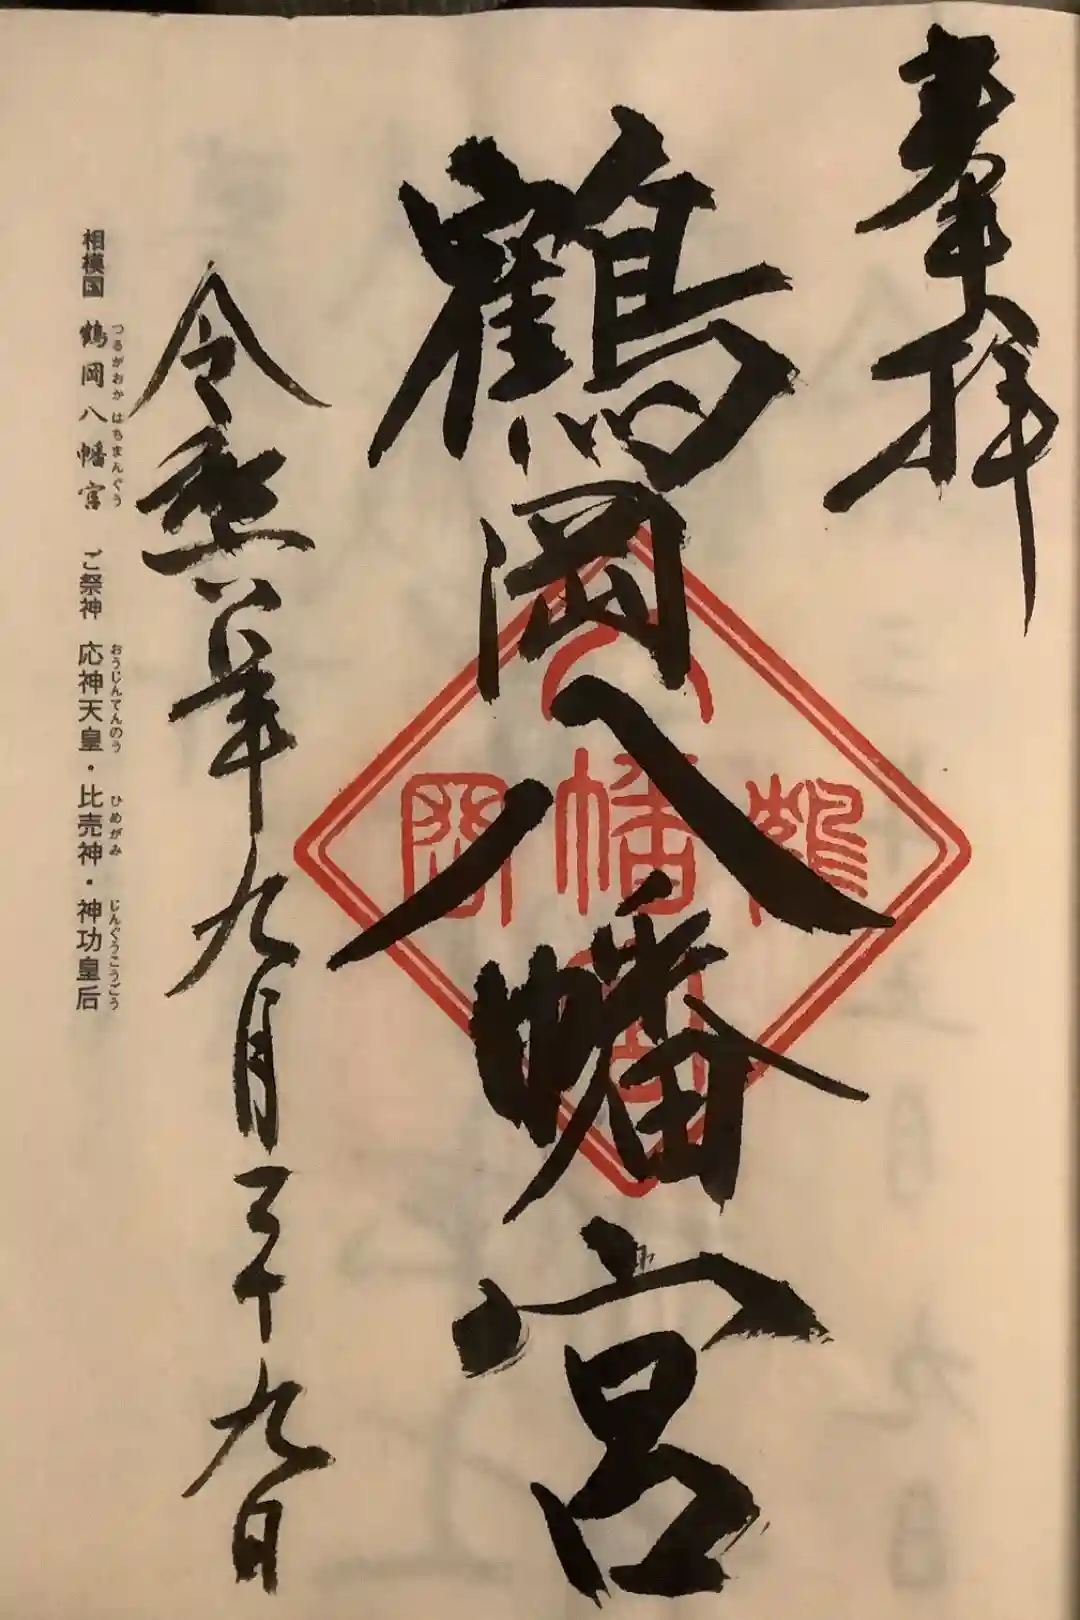 奉拝
鶴岡八幡宮
鶴岡八幡宮
令和六年九月二十九日
つるがおか はちまんぐう おうじんてんのう ひめがみ じんぐうこうごう
相模国 鶴岡八幡宮 ご祭神 応神天皇・比売神・神功皇后